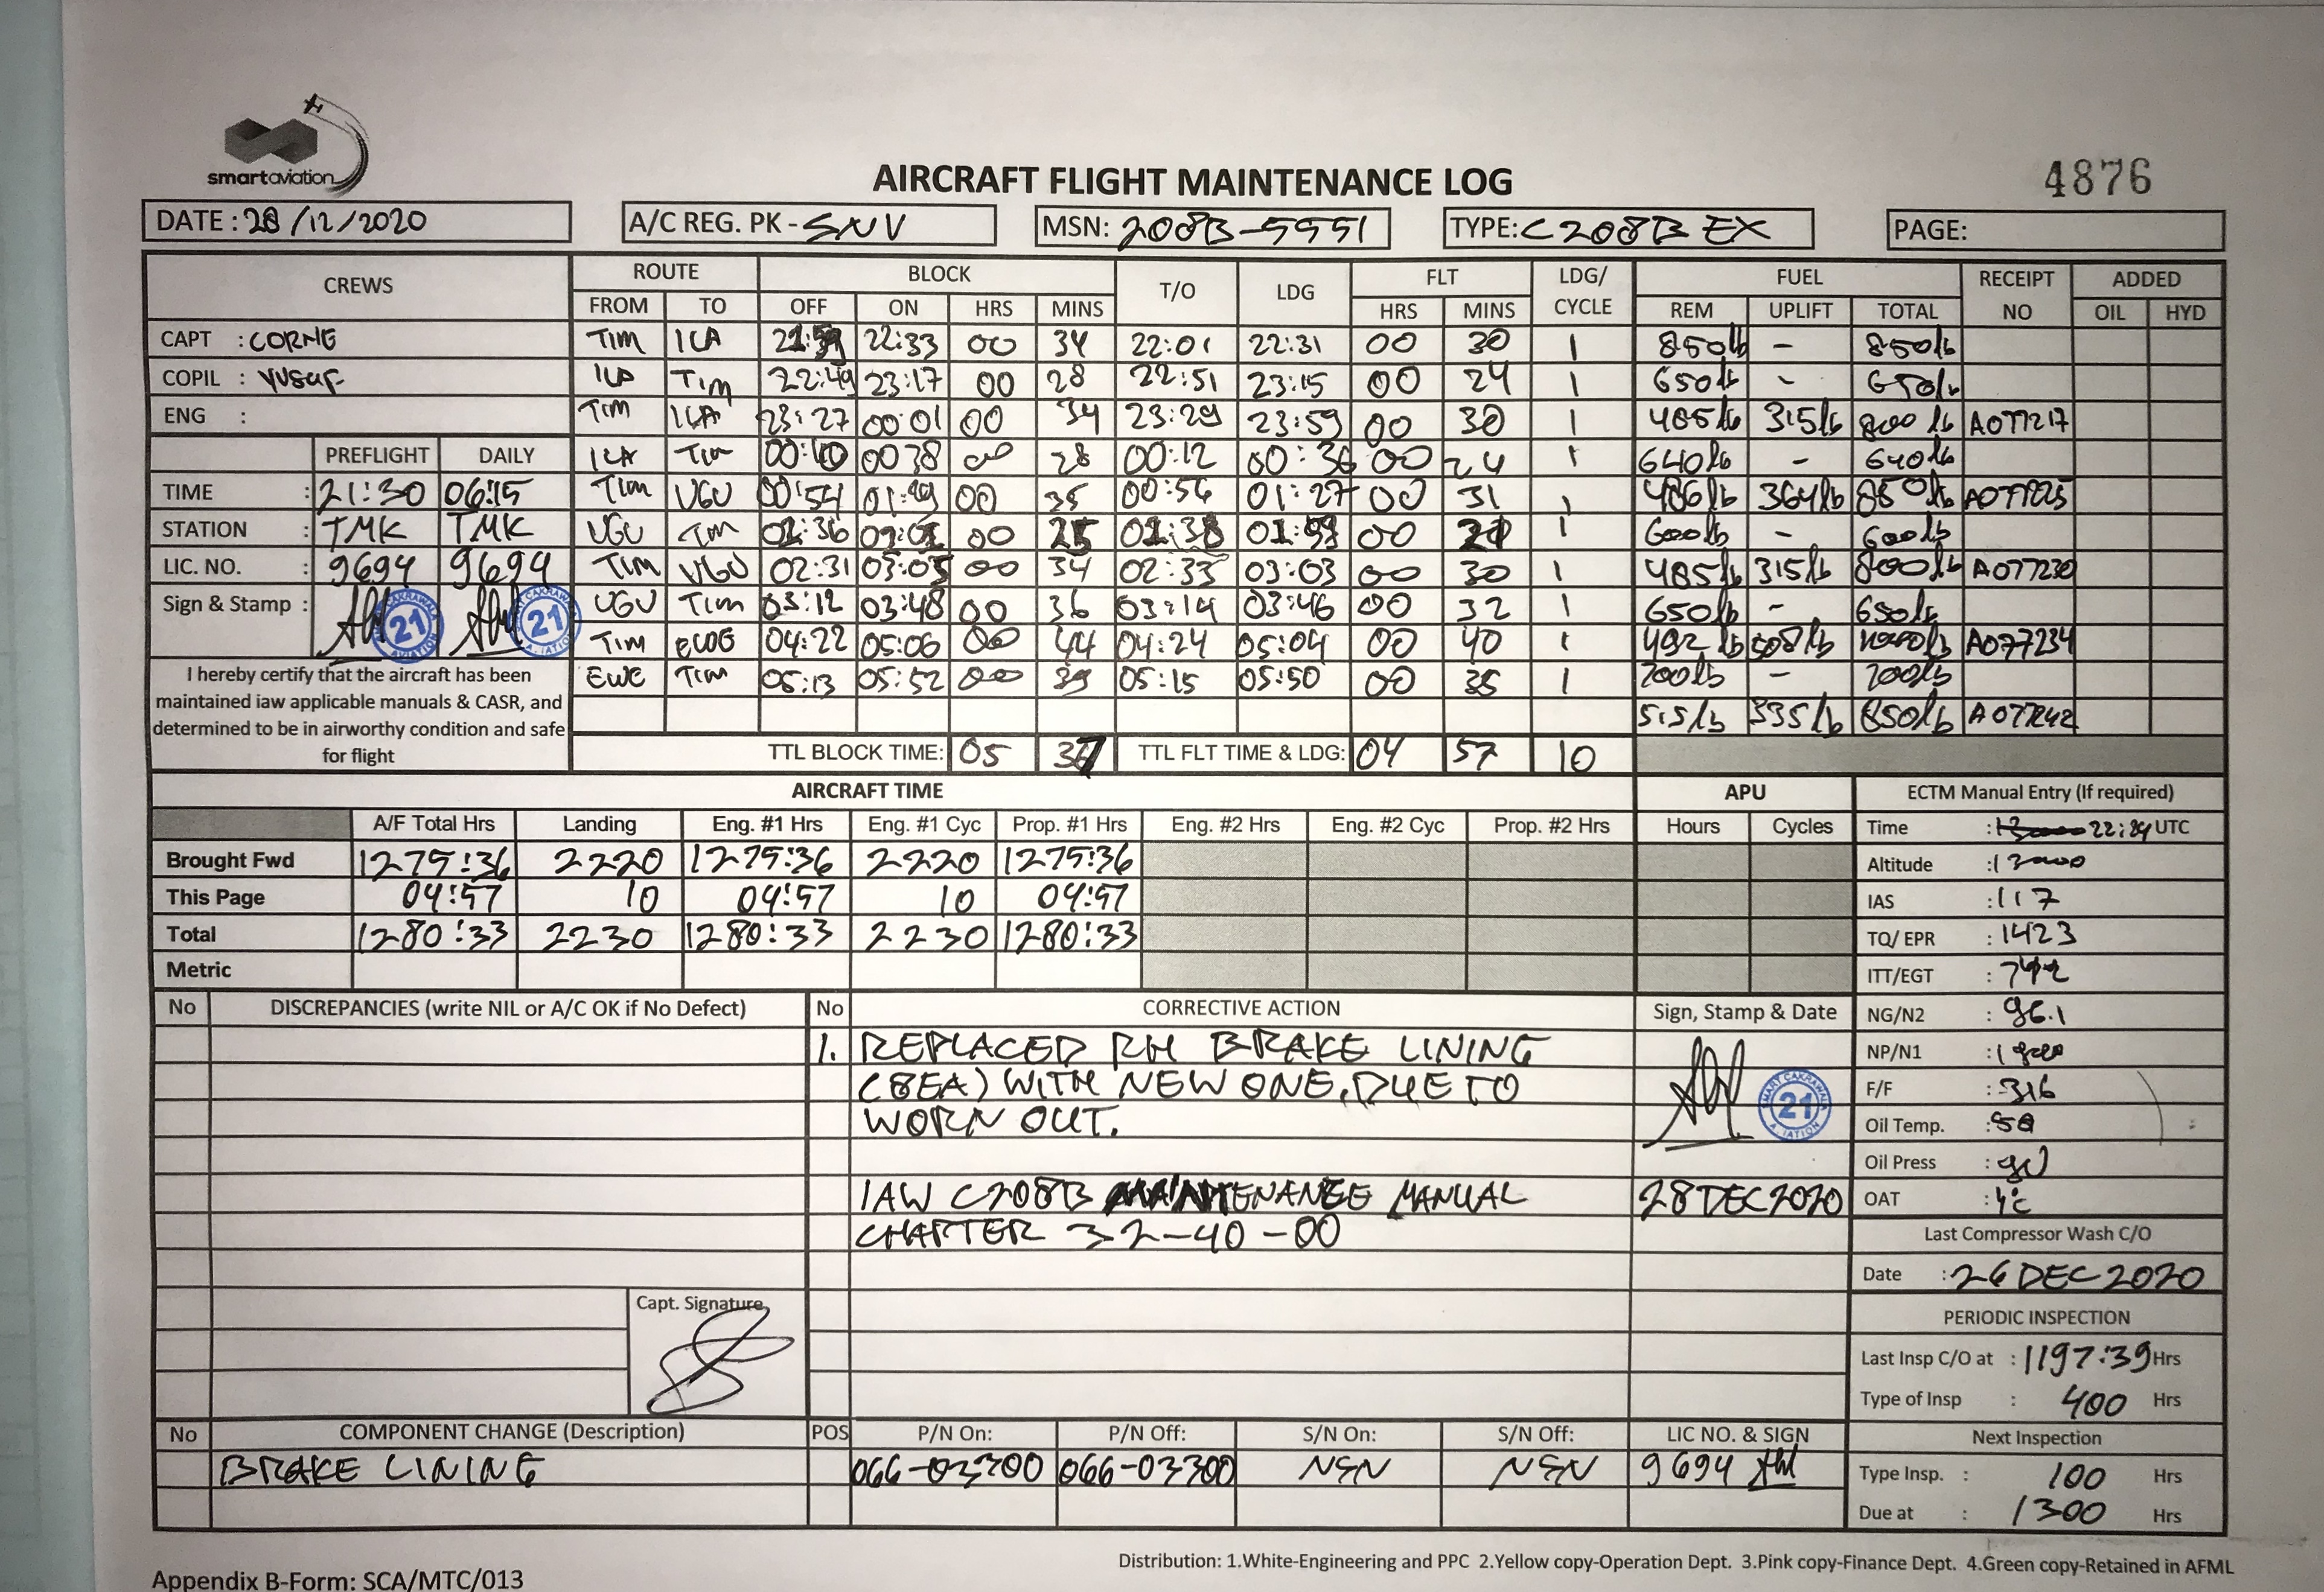 smartaviation
AIRCRAFT FLIGHT MAINTENANCE LOG
4876
DATE : 28/12/2020 A/C REG. PK - SNV MSN: 208B-5551 TYPE: C208B EX PAGE:
CREWS ROUTE BLOCK T/O LDG FLT LDG/ CYCLE FUEL RECEIPT NO ADDED
FROM TO OFF ON HRS MINS HRS MINS REM UPLIFT TOTAL OIL HYD
CAPT : CORNE TIM ILA 22:33 00 34 22:01 22:31 00 30 1 850lb - 850lb
COPIL : YUSUF ILA TIM 22:49 23:17 00 28 22:51 23:15 00 24 1 650lb - 650lb
ENG : TIM ILA 23:27 00:01 00 34 23:29 23:59 00 30 1 485lb 315lb 800 lb A077217
PREFLIGHT DAILY ILA TIM 00:10 00 38 00 28 00:12 00:36 00 24 1 640lb - 640lb
TIME : 21:30 06:15 TIM UGU 00:54 00 35 00:56 01:27 00 31 1 486lb 364lb 850lb
STATION : TMK TMK UGU TIM 01:36 00 25 01:38 00 21 1 600lb - 600lb
LIC. NO. : 9694 9694 TIM UGU 02:31 03:05 00 34 02:33 03:03 00 30 1 485lb 315lb 800lb A077230
Sign & Stamp : 21 21 UGU TIM 03:12 03:48 00 36 03:14 03:46 00 32 1 650lb - 650lb
TIM 04:22 05:06 00 44 04:24 05:04 00 40 1 492 lb 508lb 1000lb A077234
EWE TIM 05:13 05:52 00 39 05:15 05:50 00 35 1 700lb - 700lb
515lb 335lb 850lb A077242
I hereby certify that the aircraft has been
maintained iaw applicable manuals & CASR, and
determined to be in airworthy condition and safe
for flight
TTL BLOCK TIME: 05 37 TTL FLT TIME & LDG: 04 57 10
AIRCRAFT TIME APU ECTM Manual Entry (If required)
A/F Total Hrs Landing Eng. #1 Hrs Eng. #1 Cyc Prop. #1 Hrs Eng. #2 Hrs Eng. #2 Cyc Prop. #2 Hrs Hours Cycles
Brought Fwd 1275:36 2220 1275:36 2220 1275:36
This Page 04:57 10 04:57 10 04:57
Total 1280:33 2230 1280:33 2230 1280:33
Metric
Time : 22:24 UTC
Altitude : 13000
IAS : 117
TQ/ EPR : 1423
ITT/EGT : 742
NG/N2 : 96.1
NP/N1 :
F/F : 316
Oil Temp. :
Oil Press : 90
OAT : 4°C
Last Compressor Wash C/O
Date : 26 DEC 2020
PERIODIC INSPECTION
Last Insp C/O at : 1197:39 Hrs
Type of Insp : 400 Hrs
Next Inspection
Type Insp. : 100 Hrs
Due at : 1300 Hrs
No DISCREPANCIES (write NIL or A/C OK if No Defect) No CORRECTIVE ACTION Sign, Stamp & Date
1. REPLACED RH BRAKE LINING
(8EA) WITH NEW ONE, DUE TO
WORN OUT.
SMART CAKRAWALA AVIATION 21
IAW C208B MAINTENANCE MANUAL 28 DEC 2020
CHAPTER 32-40-00
Capt. Signature
No COMPONENT CHANGE (Description) POS P/N On: P/N Off: S/N On: S/N Off: LIC NO. & SIGN
BRAKE LINING 066-03300 066-03300 NSN NSN 9694
Distribution: 1.White-Engineering and PPC 2.Yellow copy-Operation Dept. 3.Pink copy-Finance Dept. 4.Green copy-Retained in AFML
Appendix B-Form: SCA/MTC/013